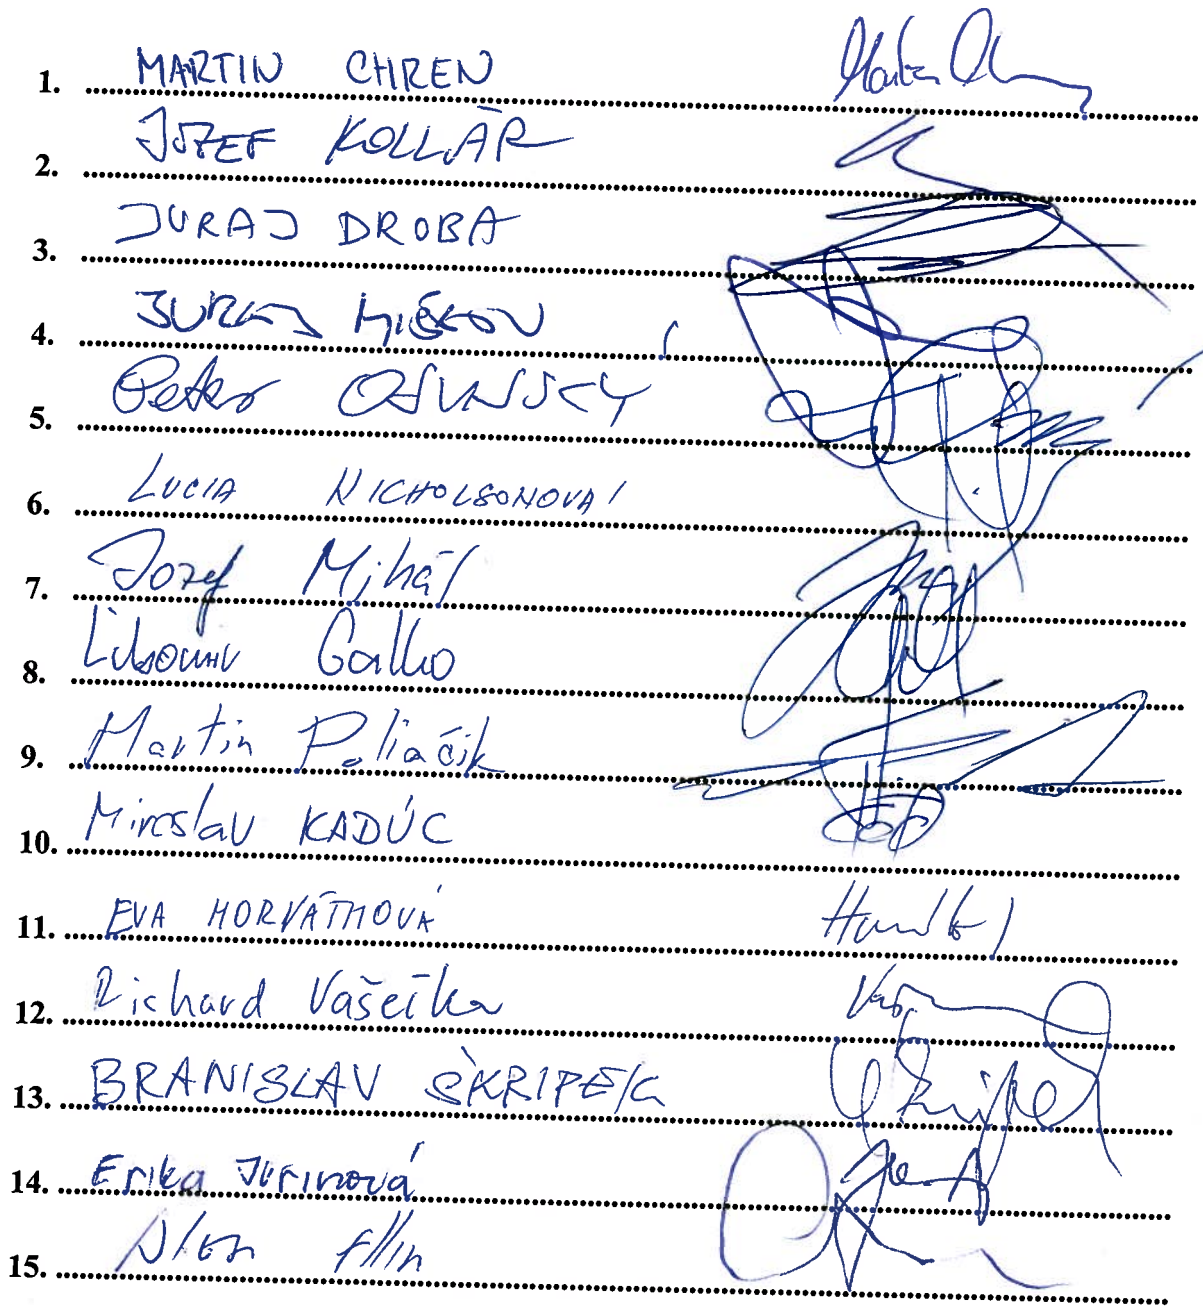 1. MARTIN CHREN
2. JOZEF KOLLÁR
3. JURAJ DROBA
4. JURAJ MIŠKOV
5. Peter OSUSKÝ
6. LUCIA NICHOLSONOVÁ
7. Jozef Mihál
8. Ľubomír Galko
9. Martin Poliačik
10. Miroslav KADÚC
11. EVA HORVÁTHOVÁ
12. Richard Vašečka
13. BRANISLAV ŠKRIPEK
14. Erika Jurinová
15.